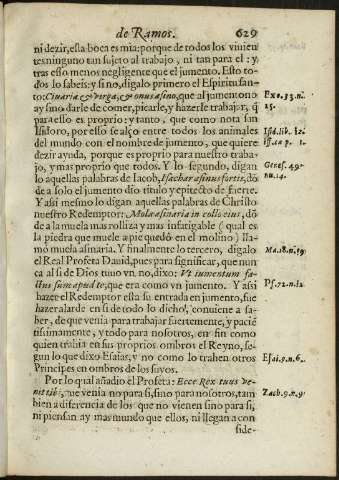 de Ramos. 629
ni dezir, essa boca es mia: porque de todos los viuien
tes ninguno tan sujeto al trabajo, ni tan para el: y
tras esso menos negligente que el jumento. Esto to-
dos lo sabeis: y si no, digalo primero el Espiritu san-
to: Cibaria & virga, & onus asino, que al jumento no
ay sino darle de comer, picarle, y hazerle trabajar, q̃
para esso es proprio: y tanto, que como nota san
Isidoro, por esso se alço entre todos los animales
del mundo con el nombre de jumento, que quiere
dezir ayuda, porque es proprio para nuestro traba-
jo, y mas proprio que todos. Y lo segundo, digan
lo aquellas palabras de Iacob, Isachar asinus fortis, dõ
de a solo el jumento dio titulo y epitecto de fuerte.
Y assi mesmo lo digan aquellas palabras de Christo
nuestro Redemptor: Mola asinaria in collo eius, dõ
de a la muela mas rolliza y mas infatigable (qual es
la piedra que muele a pie quedo en el molino) lla-
mó muela asinaria. Y finalmente lo tercero, digalo
el Real Profeta Dauid, pues para significar, que nun
ca al si de Dios tuuo vn no, dixo: Vt iumentum fa-
ctus sum apud te, que era como vn jumento. Y assi
hazer el Redemptor esta su entrada en jumento, fue
hazer alarde en si de todo lo dicho, conuiene a sa-
ber, de que venia para trabajar fuertemente, y pacie
tissimamente, y todo para nosotros, en fin como
quien trahia en sus proprios ombros el Reyno, se-
gun lo que dixo Esaias, y no como lo trahen otros
Principes en ombros de los suyos.
Por lo qual añadio el Profeta: Ecce Rex tuus ve-
nit tibi, que venia no para si, sino para nosotros, tam
bien a diferencia de los que no vienen sino para si,
ni piensan ay mas mundo que ellos, ni llegan a con
side-
Exe. 33. n.
25.
Isid. lib. 12.
Genes. 49.
nu. 14.
Ma. 18. n. 19.
Ps. 72. n. 12
Esai. 9. n. 6.
Zach. 9. n. 9.